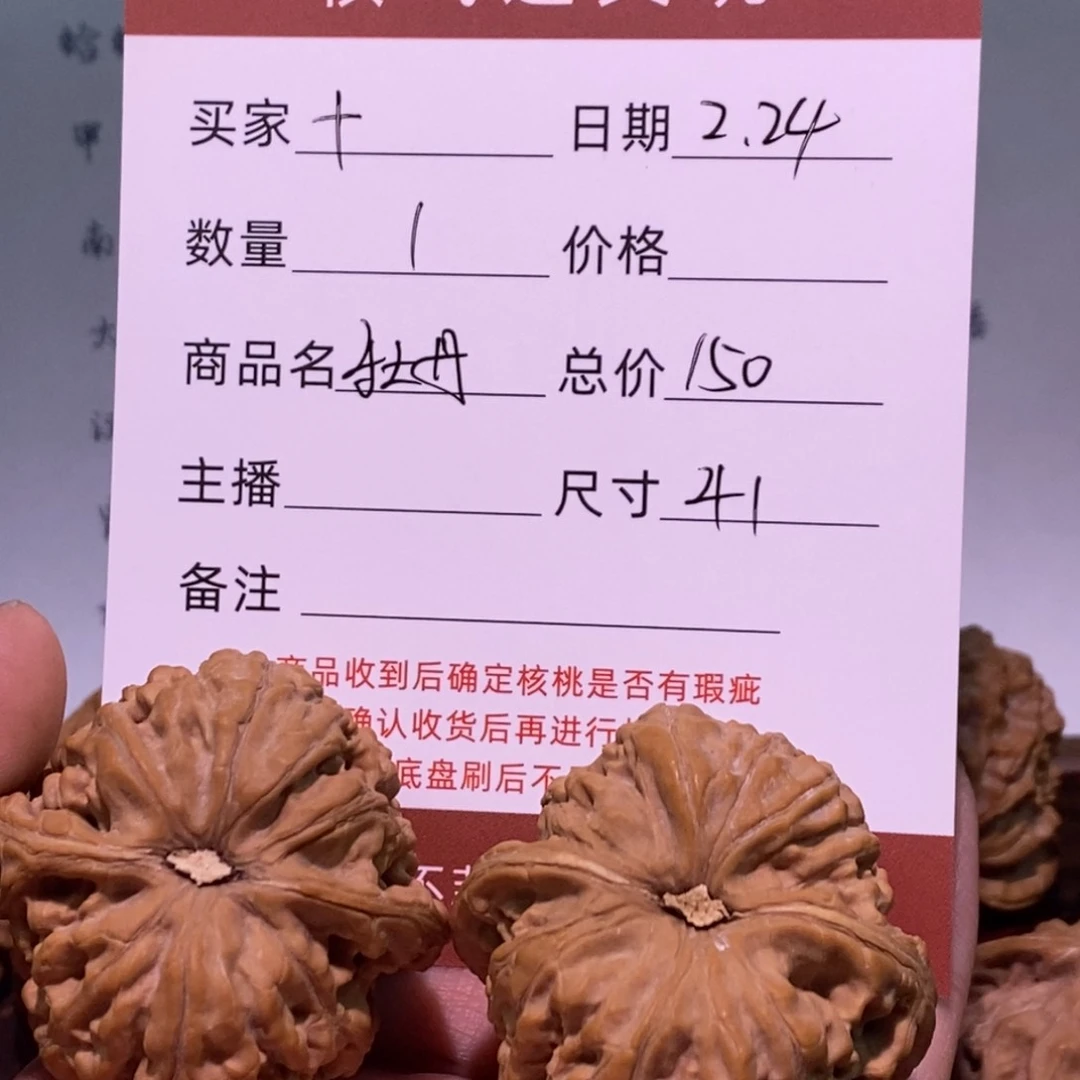 买家 十 日期 2.24
数量 1 价格
商品名 牡丹 总价 150
主播 尺寸 41
备注
商品收到后确定核桃是否有瑕疵
确认收货后再进行
底盘刷后不
甲
南
大